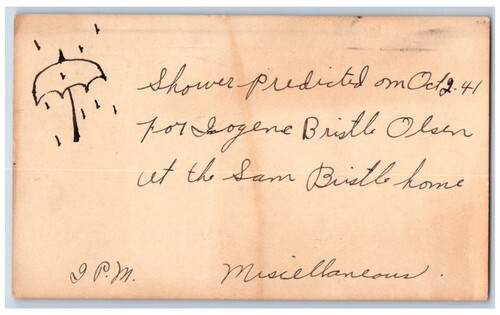 Shower predicted on Oct 2-41
For Isogene Bristle Olsen
at the Sam Bristle home
2 P.M. Miscellaneous.